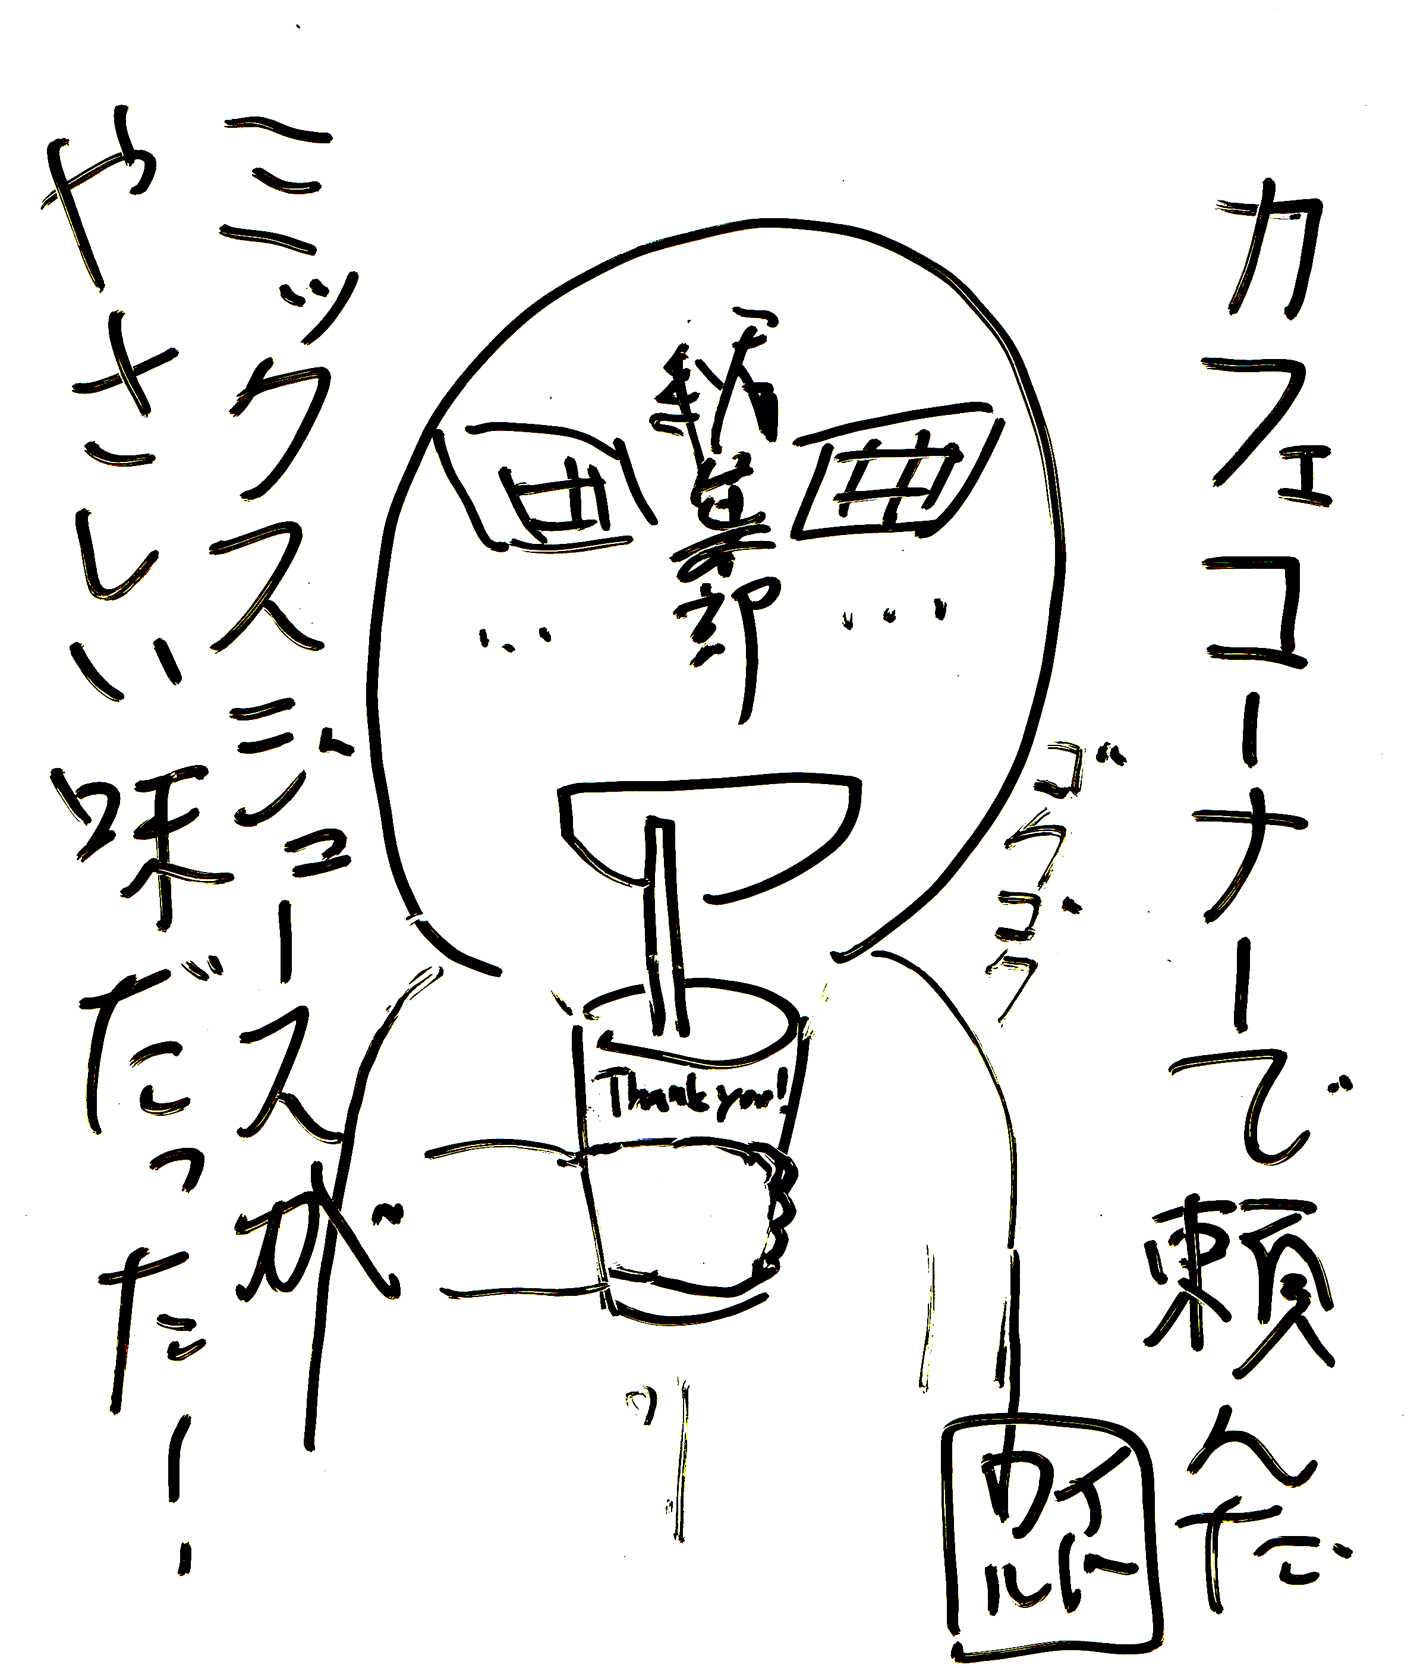 カフェコーナーで頼んだ
ミックスジュースが
やさしい味だったー!
編集部
ゴクゴク
Thank you!
ワイ
ルド